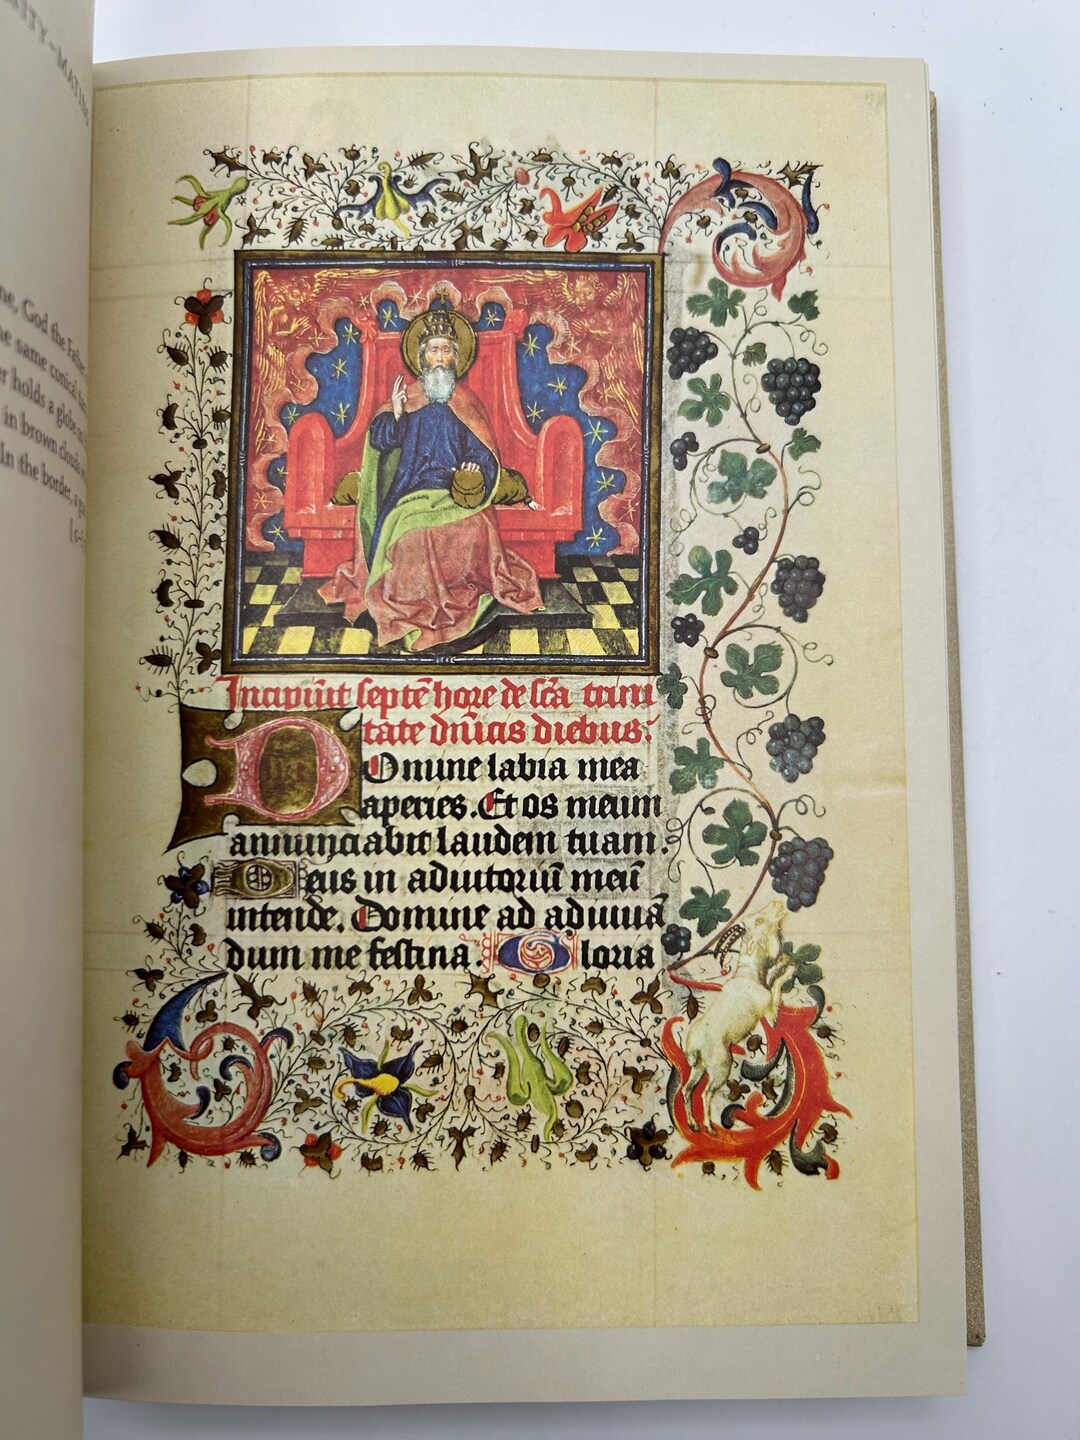 RITY–MATINS
ne, God the Father,
he same conical
er holds a globe in
in brown clouds
In the border, a
Incipiūt septē hore de scā trini
tate dn̄icis diebus.
Domine labia mea
aperies. Et os meum
annunciabit laudem tuam.
Deus in adiutoriū meū
intende. Domine ad adiuuā
dum me festina. Gloria